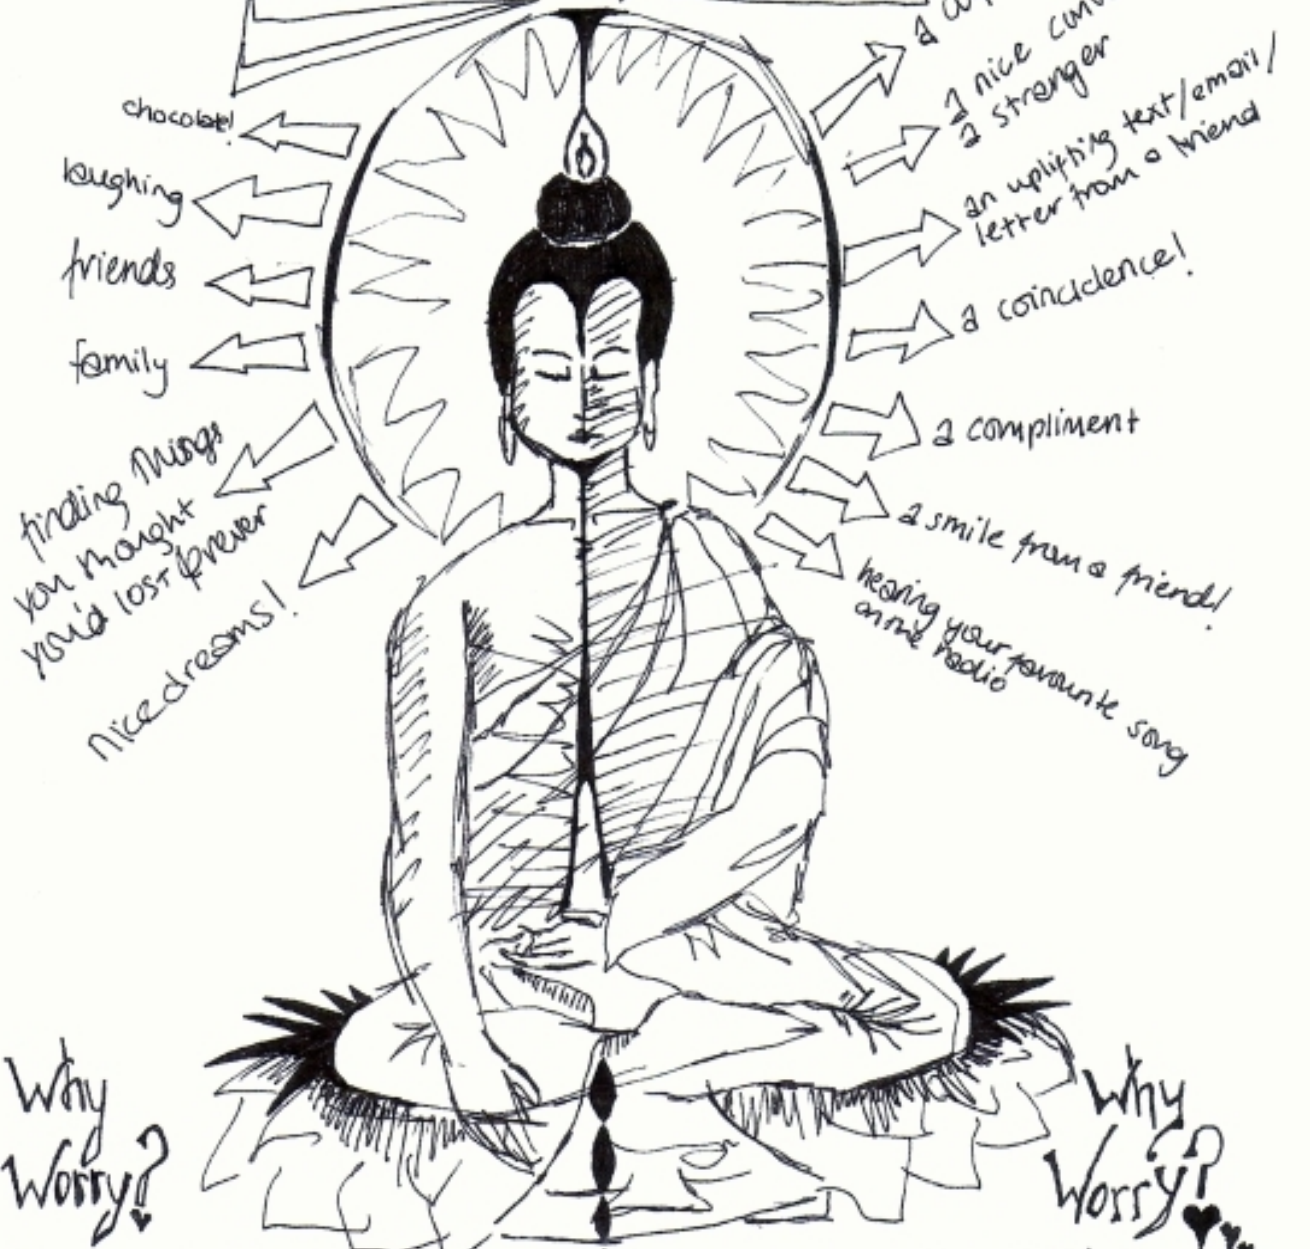 chocolate!
laughing
friends
family
finding things
you thought
you'd lost forever
nice dreams!
a
a nice
a stranger
an uplifting text/email/
letter from a friend
a coincidence!
a compliment
a smile from a friend!
hearing your favourite song
on the radio
Why
Worry?
Why
Worry?